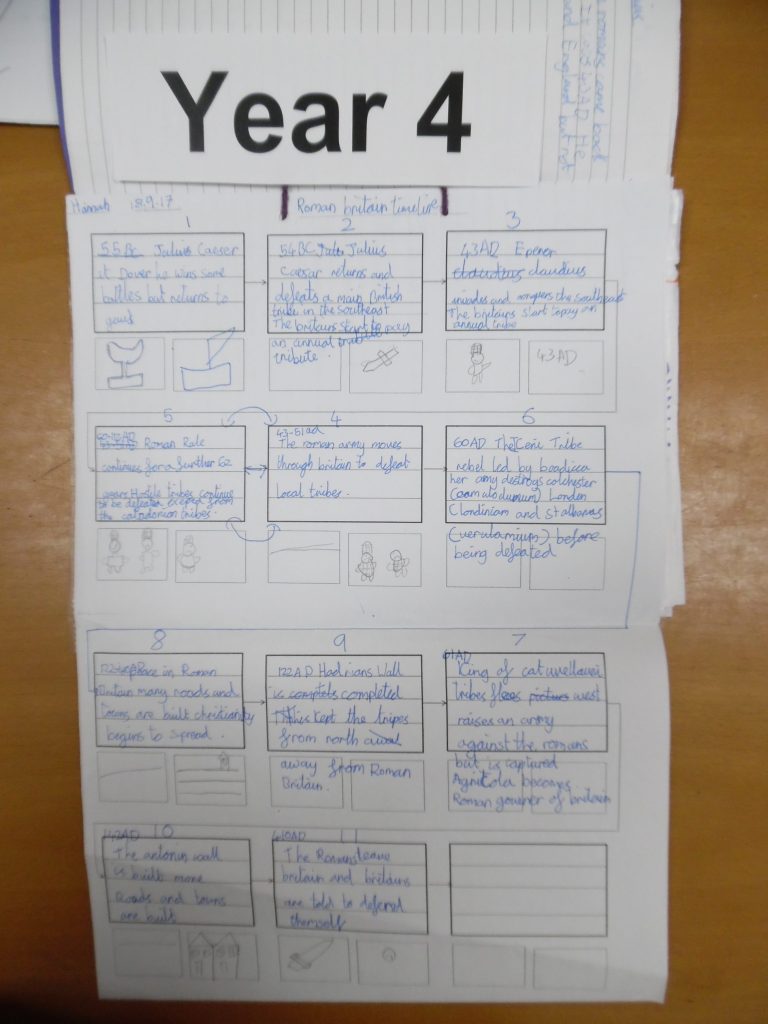 Year 4
Hannah 18.9.17
Roman britain timeline
1
55BC Julius Caeser
at Dover he wins some
battles but returns to
2
54BC Julius
Caesar returns and
defeats a main British
tribe in the southeast
The britains start to pay
an annual
tribute.
3
43AD
claudius claudius
invades and conquers the southeast
The britains start to pay an
annual tribe
43AD
5
Roman Rule
continues for a further 62
years Hostile tribes continue
to be defeated
tribes.
4
43-51ad
The roman army moves
through britain to defeat
local tribes.
6
60AD The Iceni Tribe
rebel led by boadicca
her army destroys colchester
London
Clondiniam and st albans
(verulamium) before
being defeated
8
peace in Roman
Britain many roads and
towns are built christianity
begins to spread.
9
122AD Hadrians Wall
is complets completed
This kept the tripes
from north away
away from Roman
Britain.
7
61AD
King of catuvellauni
tribes flees west
raises an army
against the romans
but is captured
Agricola becomes
Roman governer of britain
10
142AD
The antonin wall
is built more
Roads and towns
are built
11
410AD
The Romans leave
britain and britains
are told to defend
themself
romans came back
It was 43AD He
England but not